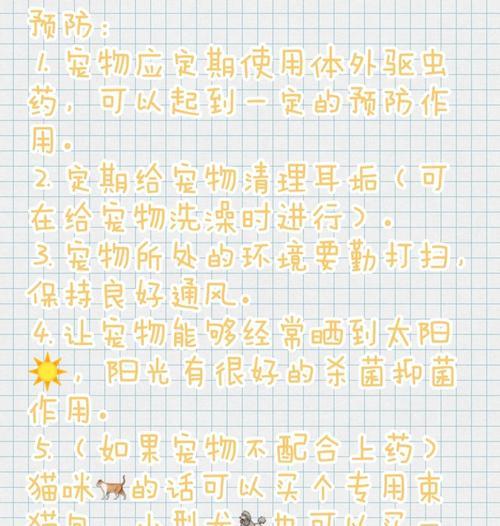 预防：
1.宠物应定期使用体外驱虫
药，可以起到一定的预防作
用。
2.定期给宠物清理耳垢（可
在给宠物洗澡时进行）。
3.宠物所处的环境要勤打扫，
保持良好通风。
4.让宠物能够经常晒到太阳
☀️，阳光有很好的杀菌抑菌
作用。
5.（如果宠物不配合上药）
猫咪🐈的话可以买个专用束
猫包，小型犬🐩也可以买